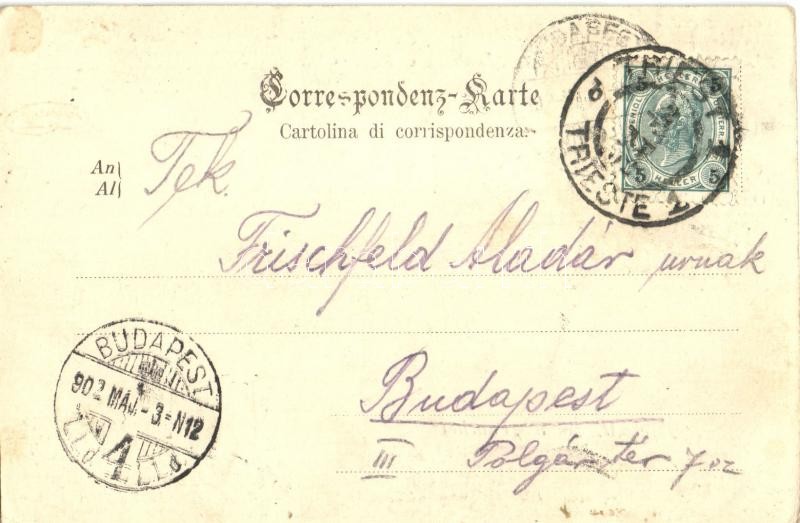 Correspondenz-Karte
Cartolina di corrispondenza.
An
Al
Tek.
Frischfeld Aladár urnak
Budapest
III Polgár tér
BUDAPEST
TRIESTE 2
5 HELLER 5
BUDAPEST
902 MÁJ.-3.-N12
4